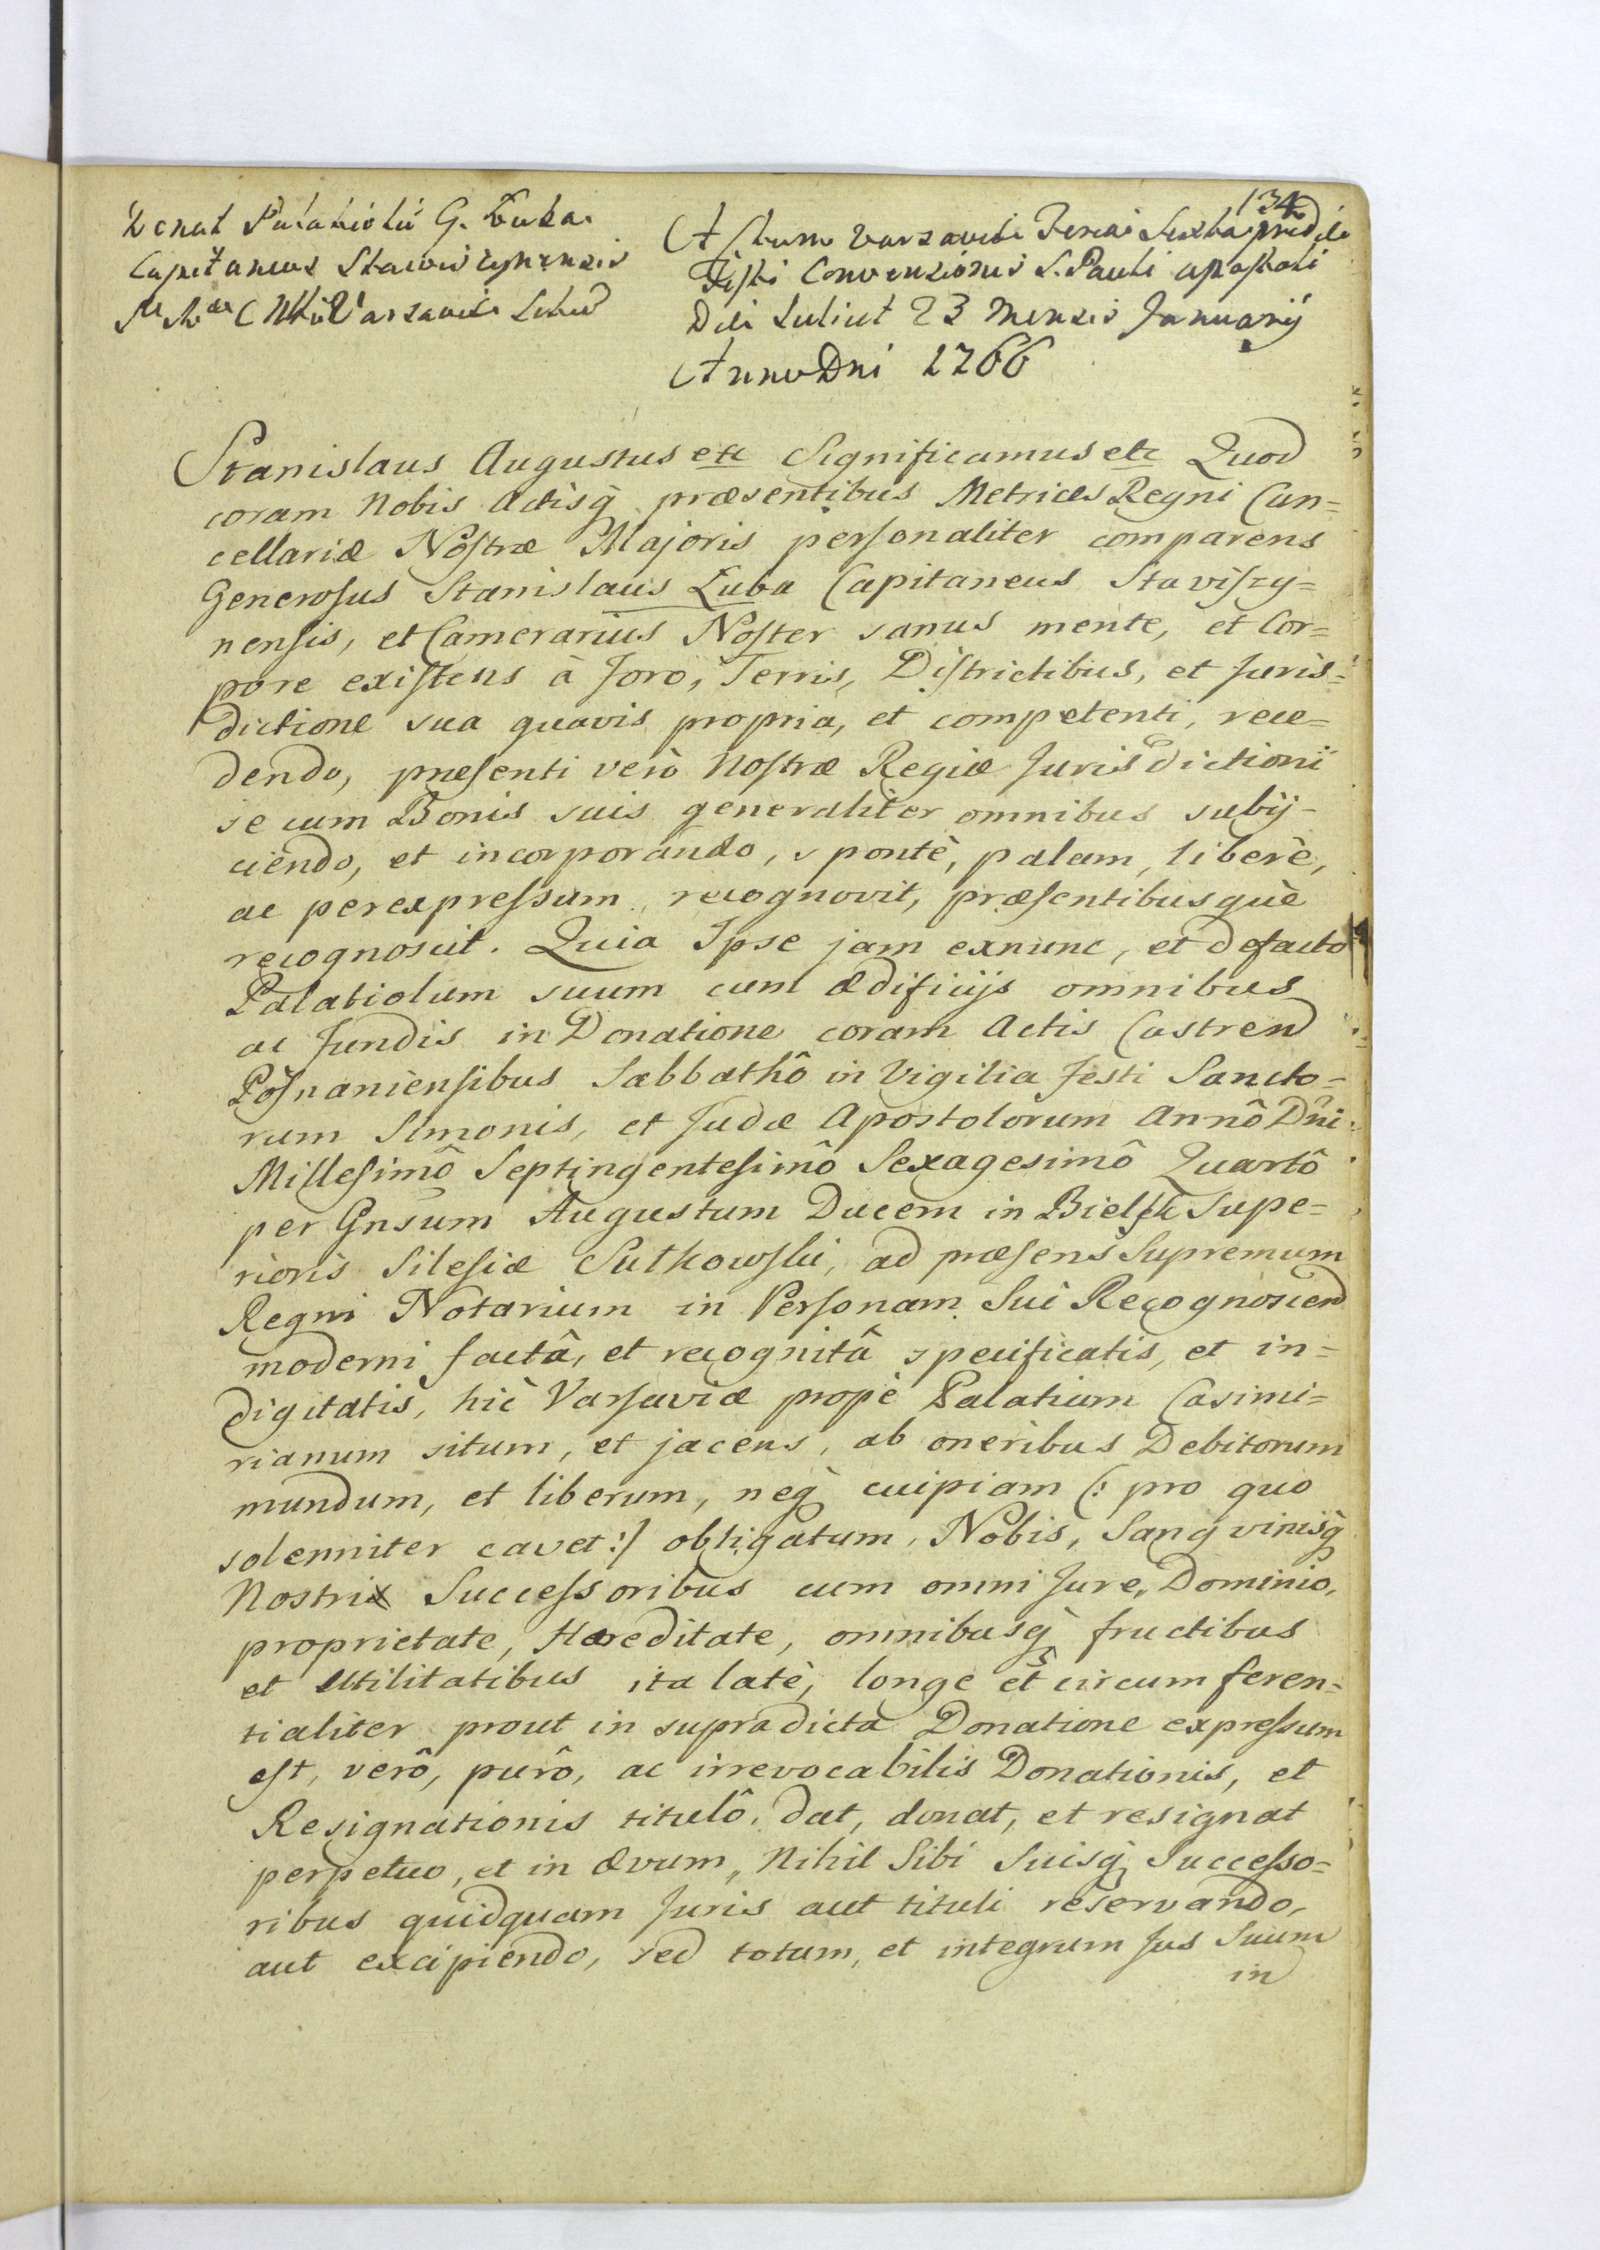 134
Donat Palatiolũ G. Łuba
Capitaneus Stawiszynensis
Varsaviæ
Actum Varsaviæ Feria Sexta pridie
Festi Conversionis S. Pauli Apostoli
Die Scilicet 23 Mensis Januarij
Anno Dni 1766
Stanislaus Augustus etc Significamus etc Quod
coram Nobis Actisq̀ præsentibus Metrices Regni Can=
cellariæ Nostræ Majoris personaliter comparens
Generosus Stanislaus Łuba Capitaneus Staviszy=
nensis, et Camerarius Noster sanus mente, et Cor=
pore existens à Foro, Terris, Districtibus, et Juris=
dictione sua quavis propria, et competenti, rece=
dendo, præsenti verò Nostræ Regiæ Jurisdictioni
se cum Bonis suis generaliter omnibus subij-
ciendo, et incorporando, spontè, palam, liberè,
ac perexpressum recognovit, præsentibusquè
recognoscit. Quia Ipse jam exnunc, et defacto
Palatiolum suum cum ædificijs omnibus
ac Fundis in Donatione coram Actis Castren
Posnaniensibus Sabbathô in Vigilia Festi Sancto=
rum Simonis, et Judæ Apostolorum Annô Dni
Millesimô Septingentesimô Sexagesimô Quartô
per Gnsum Augustum Ducem in Bielsk Supe=
rioris Silesiæ Sulkowski, ad præsens Supremum
Regni Notarium in Personam Sui Recognoscen
moderni factâ, et recognitâ specificatis, et in=
digitatis, hic Varsaviæ propè Palatium Casimi=
rianum situm, et jacens, ab oneribus Debitorum
mundum, et liberum, neq̀ cuipiam (: pro quo
solenniter cavet :) obligatum, Nobis, Sangvinisq̀
Nostri Successoribus cum omni Jure, Dominio,
proprietate, Hæreditate, omnibusq̀ fructibus
et Utilitatibus ita latè, longe et circumferen=
tialiter prout in supradicta Donatione expressum
est, verô, purô, ac irrevocabilis Donationis, et
Resignationis titulô, dat, donat, et resignat
perpetuo, et in ævum, Nihil Sibi Suisq̀ Successo=
ribus quidquam Juris aut tituli reservando,
aut excipiendo, sed totum, et integrum Jus Suum
in